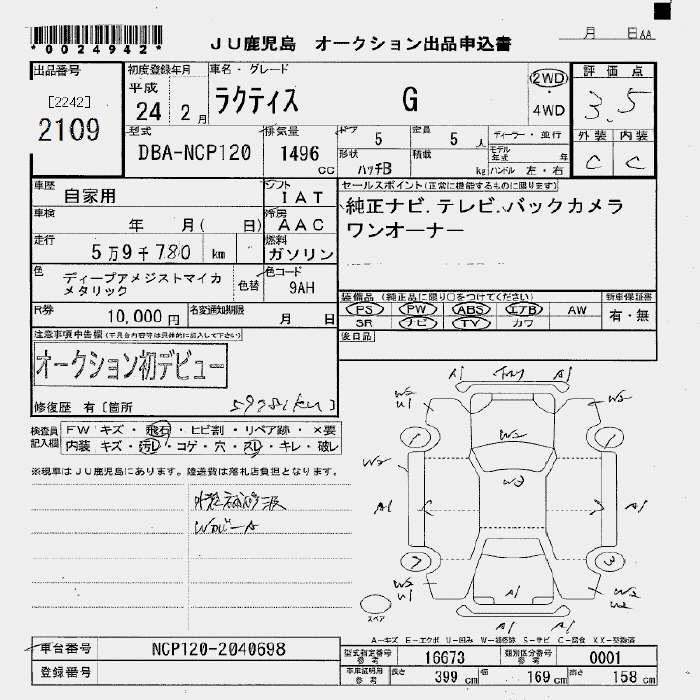 *0024942*
JU鹿児島 オークション出品申込書
月 日AA
出品番号
[2242]
2109
初度登録年月
平成
24年 2月
車名・グレード
ラクティス G
2WD
・
4WD
評価点
3.5
外装 内装
C C
型式
DBA-NCP120
排気量
1496
CC
ドア
5
定員
5人
ディーラー・並行
形状
ハッチB
積載
kg
モデル年式 年
ハンドル 左・右
車歴
自家用
シフト
IAT
車検
年 月( 日)
冷房
AAC
走行
5万9千780 km
燃料
ガソリン
色
ディープアメジストマイカメタリック
色替
色コード
9AH
セールスポイント(正常に機能するものに限ります)
純正ナビ.テレビ.バックカメラ
ワンオーナー
R券
10,000円
名変通知期限
月 日
装備品(純正品に限り○をつけてください)
PS PW ABS エアB AW
SR ナビ TV カワ
新車保証書
有・無
後日品
注意事項申告欄
オークション初デビュー
修復歴 有[箇所
59781km]
検査員記入欄
FW キズ・飛石・ヒビ割・リペア跡・×要
内装 キズ・汚レ・コゲ・穴・スレ・キレ・破レ
※現車はJU鹿児島にあります。陸送費は落札店負担となります。
A1 A1
W2 U1 W2
W2
1
W2 W3
A1 A1
7 3
W2 U1 W2
A1
A1 A1
スペア
A-キズ E-エクボ U-凹み W-補修跡 S-サビ C-腐食 XX-交換済
車台番号
NCP120-2040698
登録番号
型式指定番号
参考
16673
類別区分番号
参考
0001
車庫証明用
参考
長さ 399 cm
幅 169 cm
高さ 158 cm